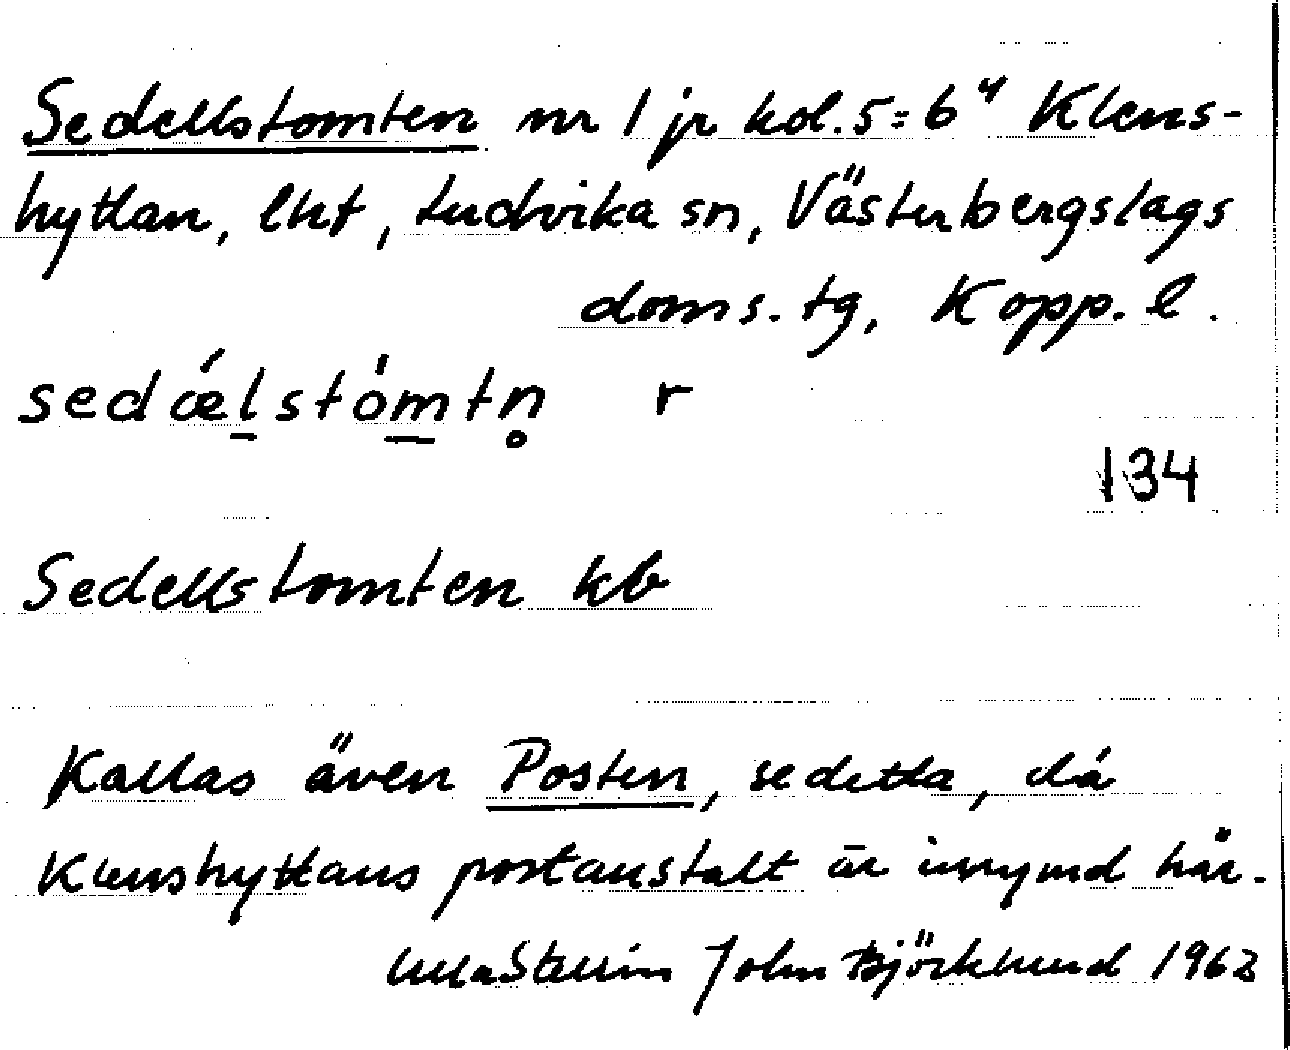 Sedellstomten nr 1 jr kol. 5 = 6⁴ Klens-
hyttan, lht, Ludvika sn, Västerbergslags
doms. tg, Kopp. l.
sedǽlstòmtn̥ r
134
Sedellstomten kb
Kallas även Posten, se detta, då
Klenshyttans postanstalt är inrymd här.
Stellin John Björklund 1962